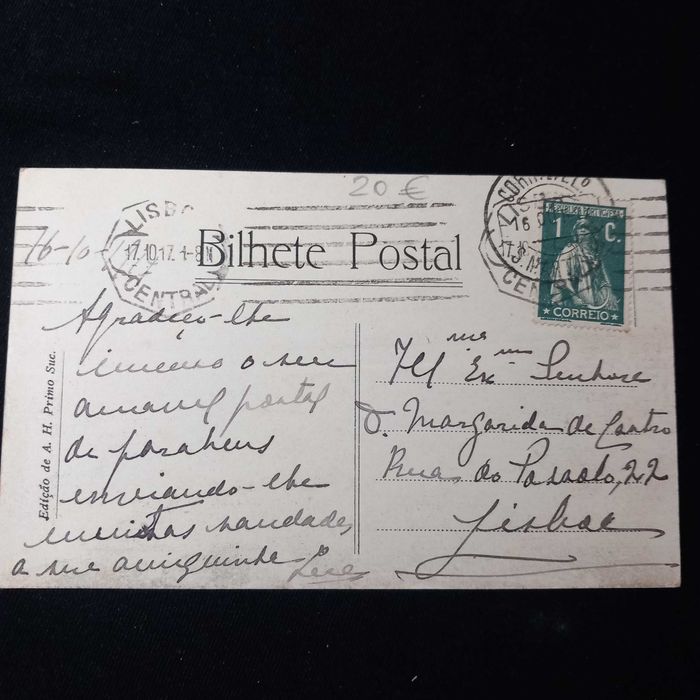 20 €
LISBO
17.10.17. 1-8
CENTRAL
16-10-
Bilhete Postal
CORREIO
16
CENTRAL
REPUBLICA PORTUGUESA
1 C.
CORREIO
Edição de A. H. Primo Suc.
Agradeço-lhe
imenso o seu
amavel postal
de parabens
enviando-lhe
muitas saudades
a sua amiguinha
Illma Exma Senhora
D. Margarida de Castro
Rua do
22
Lisboa